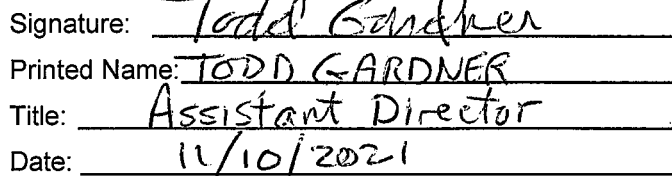 Signature: Todd Gardner
Printed Name: TODD GARDNER
Title: Assistant Director
Date: 11/10/2021